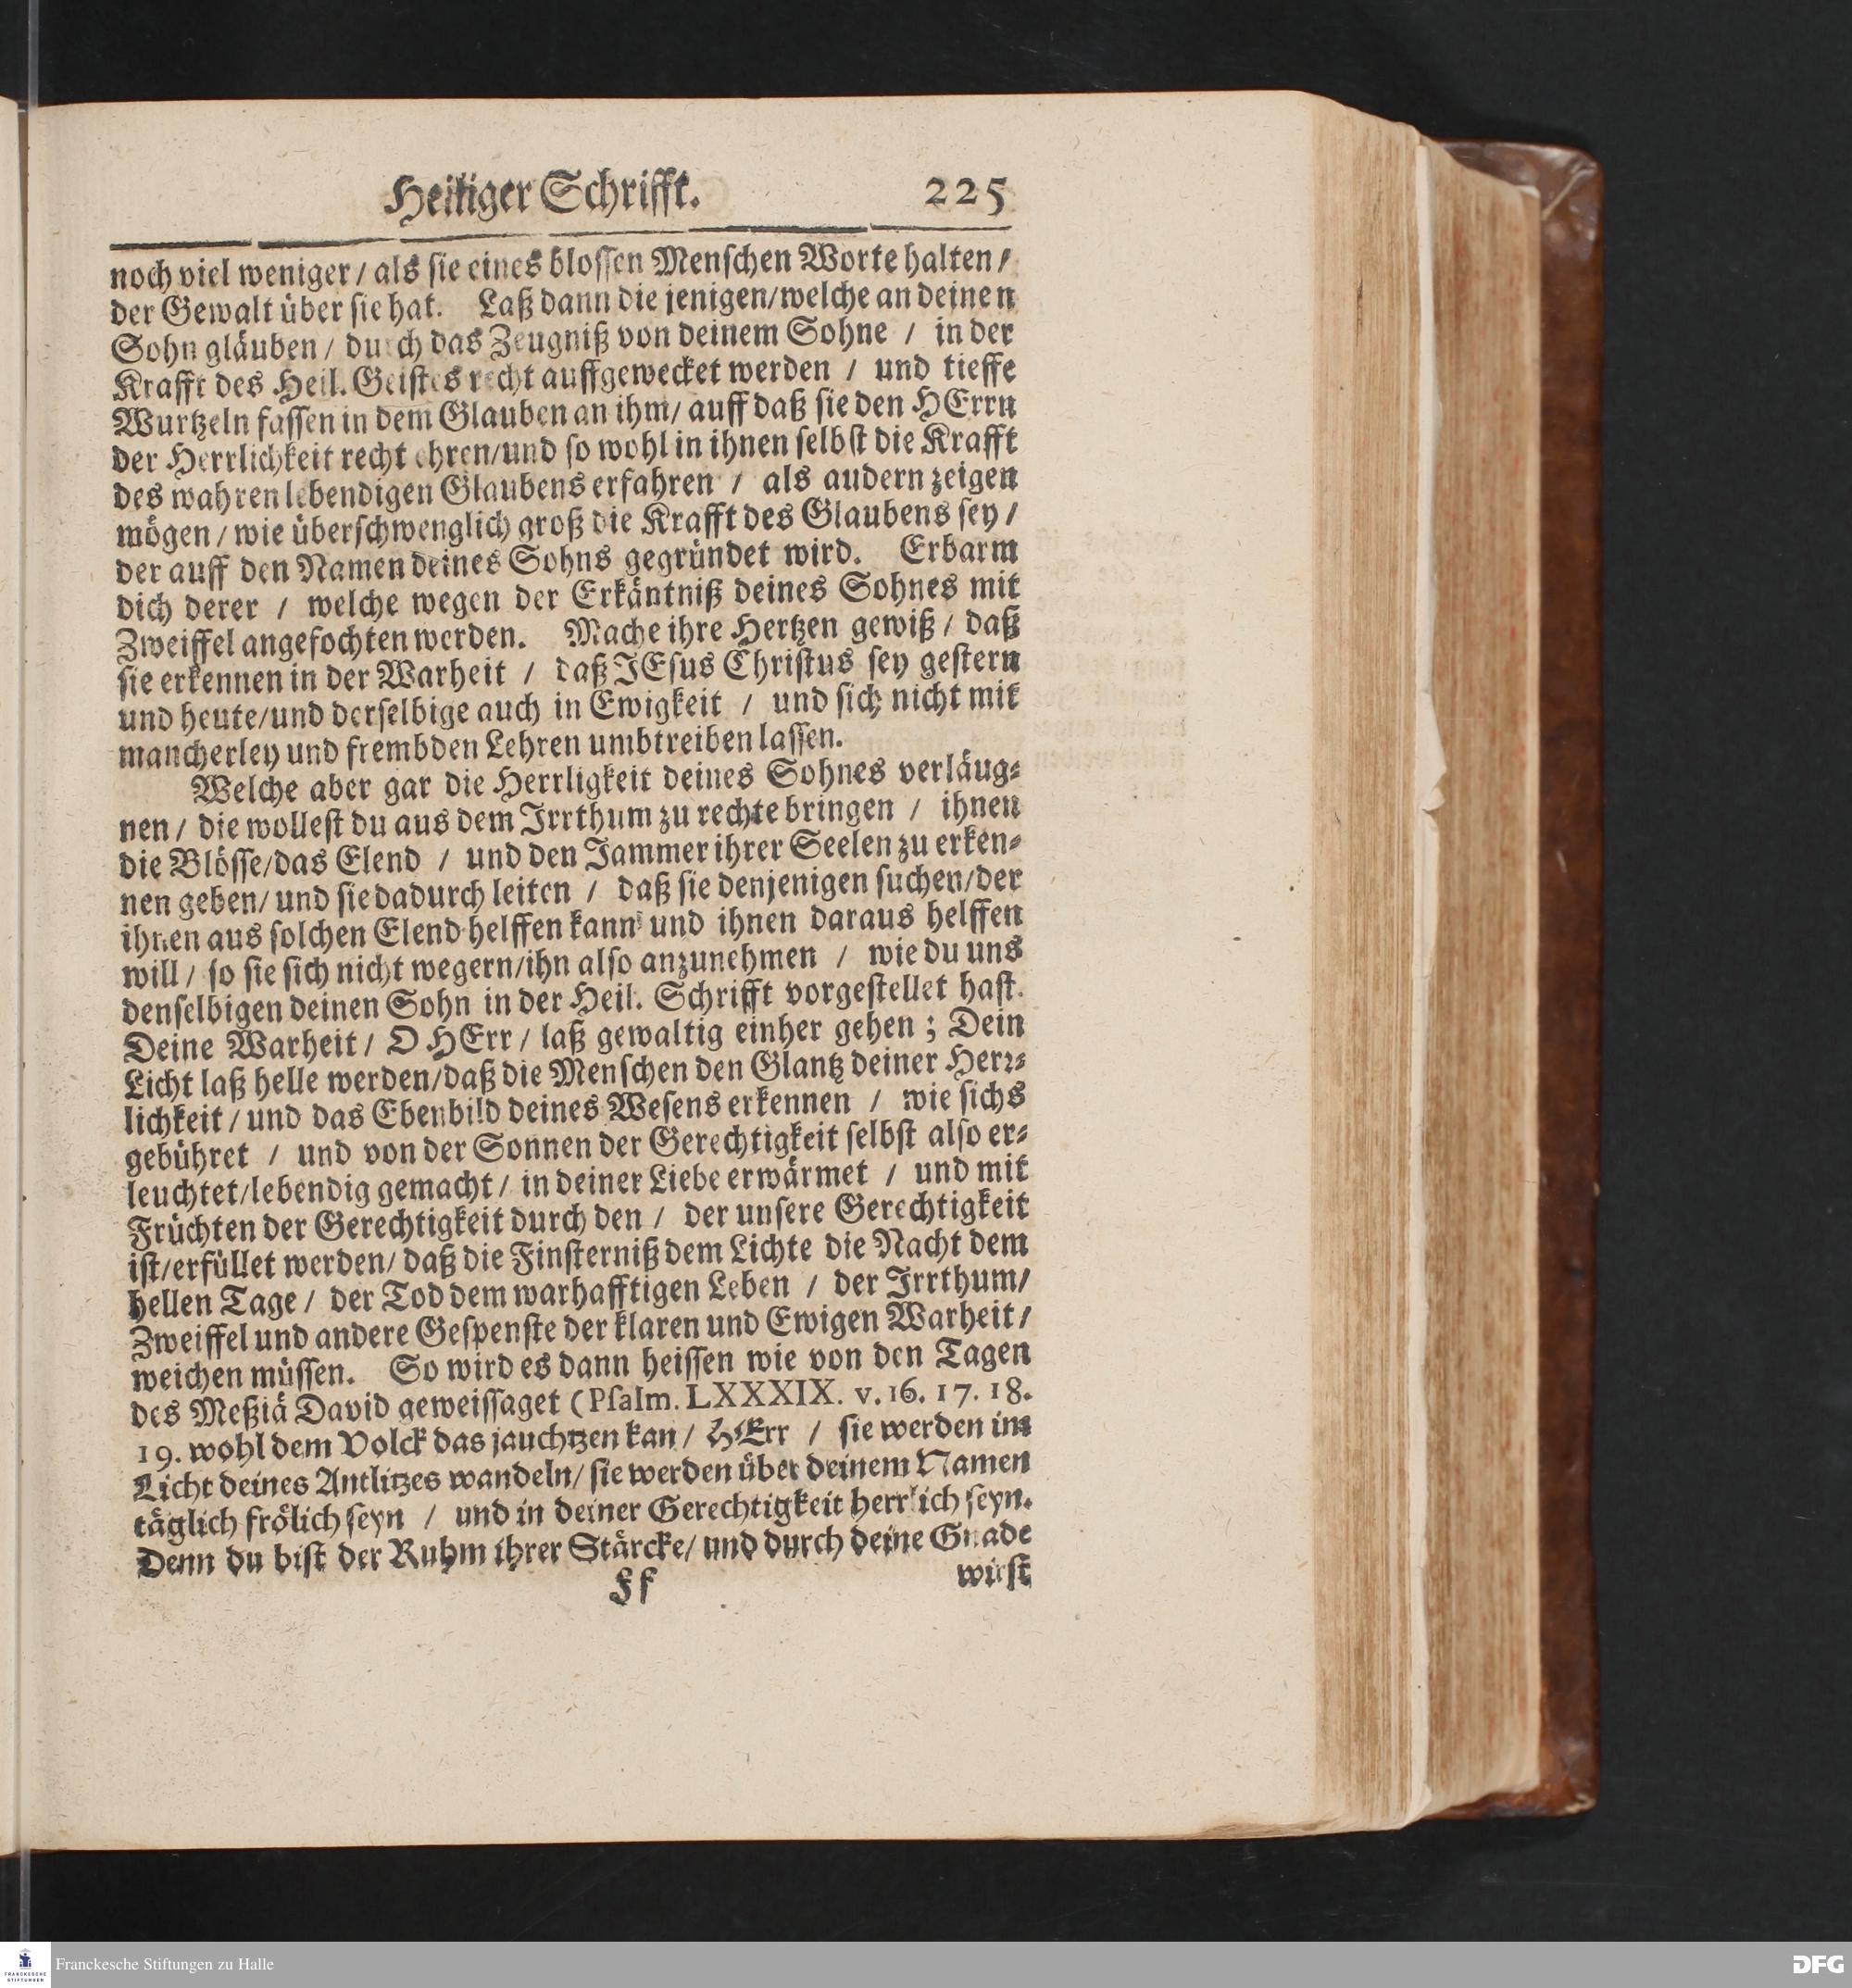 Heiliger Schrifft. 225
noch viel weniger / als sie eines blossen Menschen Worte halten /
der Gewalt über sie hat. Laß dann die jenigen/welche an deinen
Sohn gläuben / durch das Zeugniß von deinem Sohne / in der
Krafft des Heil. Geistes recht auffgewecket werden / und tieffe
Wurtzeln fassen in dem Glauben an ihm/ auff daß sie den HErrn
der Herrlichkeit recht ehren/und so wohl in ihnen selbst die Krafft
des wahren lebendigen Glaubens erfahren / als audern zeigen
mögen / wie überschwenglich groß die Krafft des Glaubens sey /
der auff den Namen deines Sohns gegründet wird. Erbarm
dich derer / welche wegen der Erkäntniß deines Sohnes mit
Zweiffel angefochten werden. Mache ihre Hertzen gewiß / daß
sie erkennen in der Warheit / daß JEsus Christus sey gestern
und heute/und derselbige auch in Ewigkeit / und sich nicht mit
mancherley und frembden Lehren umbtreiben lassen.
Welche aber gar die Herrligkeit deines Sohnes verläug-
nen / die wollest du aus dem Irrthum zu rechte bringen / ihnen
die Blösse/das Elend / und den Jammer ihrer Seelen zu erken-
nen geben/ und sie dadurch leiten / daß sie denjenigen suchen/der
ihnen aus solchen Elend helffen kann und ihnen daraus helffen
will / so sie sich nicht wegern/ihn also anzunehmen / wie du uns
denselbigen deinen Sohn in der Heil. Schrifft vorgestellet hast.
Deine Warheit / O HErr / laß gewaltig einher gehen ; Dein
Licht laß helle werden/daß die Menschen den Glantz deiner Herr-
lichkeit / und das Ebenbild deines Wesens erkennen / wie sichs
gebühret / und von der Sonnen der Gerechtigkeit selbst also er-
leuchtet/lebendig gemacht / in deiner Liebe erwärmet / und mit
Früchten der Gerechtigkeit durch den / der unsere Gerechtigkeit
ist/erfüllet werden/ daß die Finsterniß dem Lichte die Nacht dem
hellen Tage / der Tod dem warhafftigen Leben / der Irrthum/
Zweiffel und andere Gespenste der klaren und Ewigen Warheit /
weichen müssen. So wird es dann heissen wie von den Tagen
des Meßiä David geweissaget (Psalm. LXXXIX. v. 16. 17. 18.
19. wohl dem Volck das jauchtzen kan / HErr / sie werden im
Licht deines Antlitzes wandeln/ sie werden über deinem Namen
täglich frölich seyn / und in deiner Gerechtigkeit herrlich seyn.
Denn du bist der Ruhm ihrer Stärcke/ und durch deine Gnade
Ff wirst
Franckesche Stiftungen zu Halle
FRANCKESCHE
STIFTUNGEN
DFG